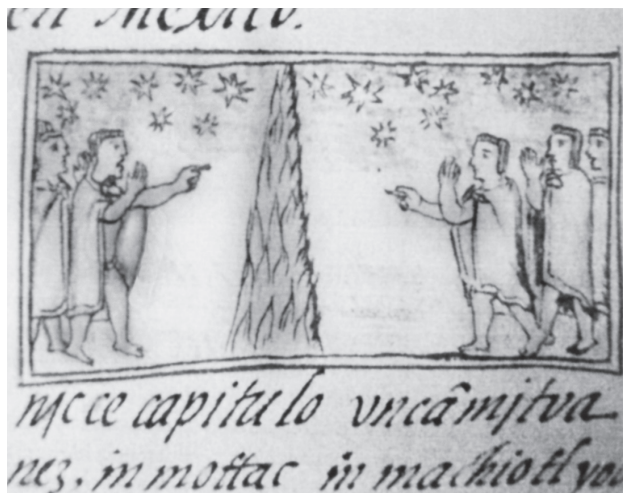 en Mexico.
njc ce capitulo vncã mjtva
nez, in mottac in machiotl